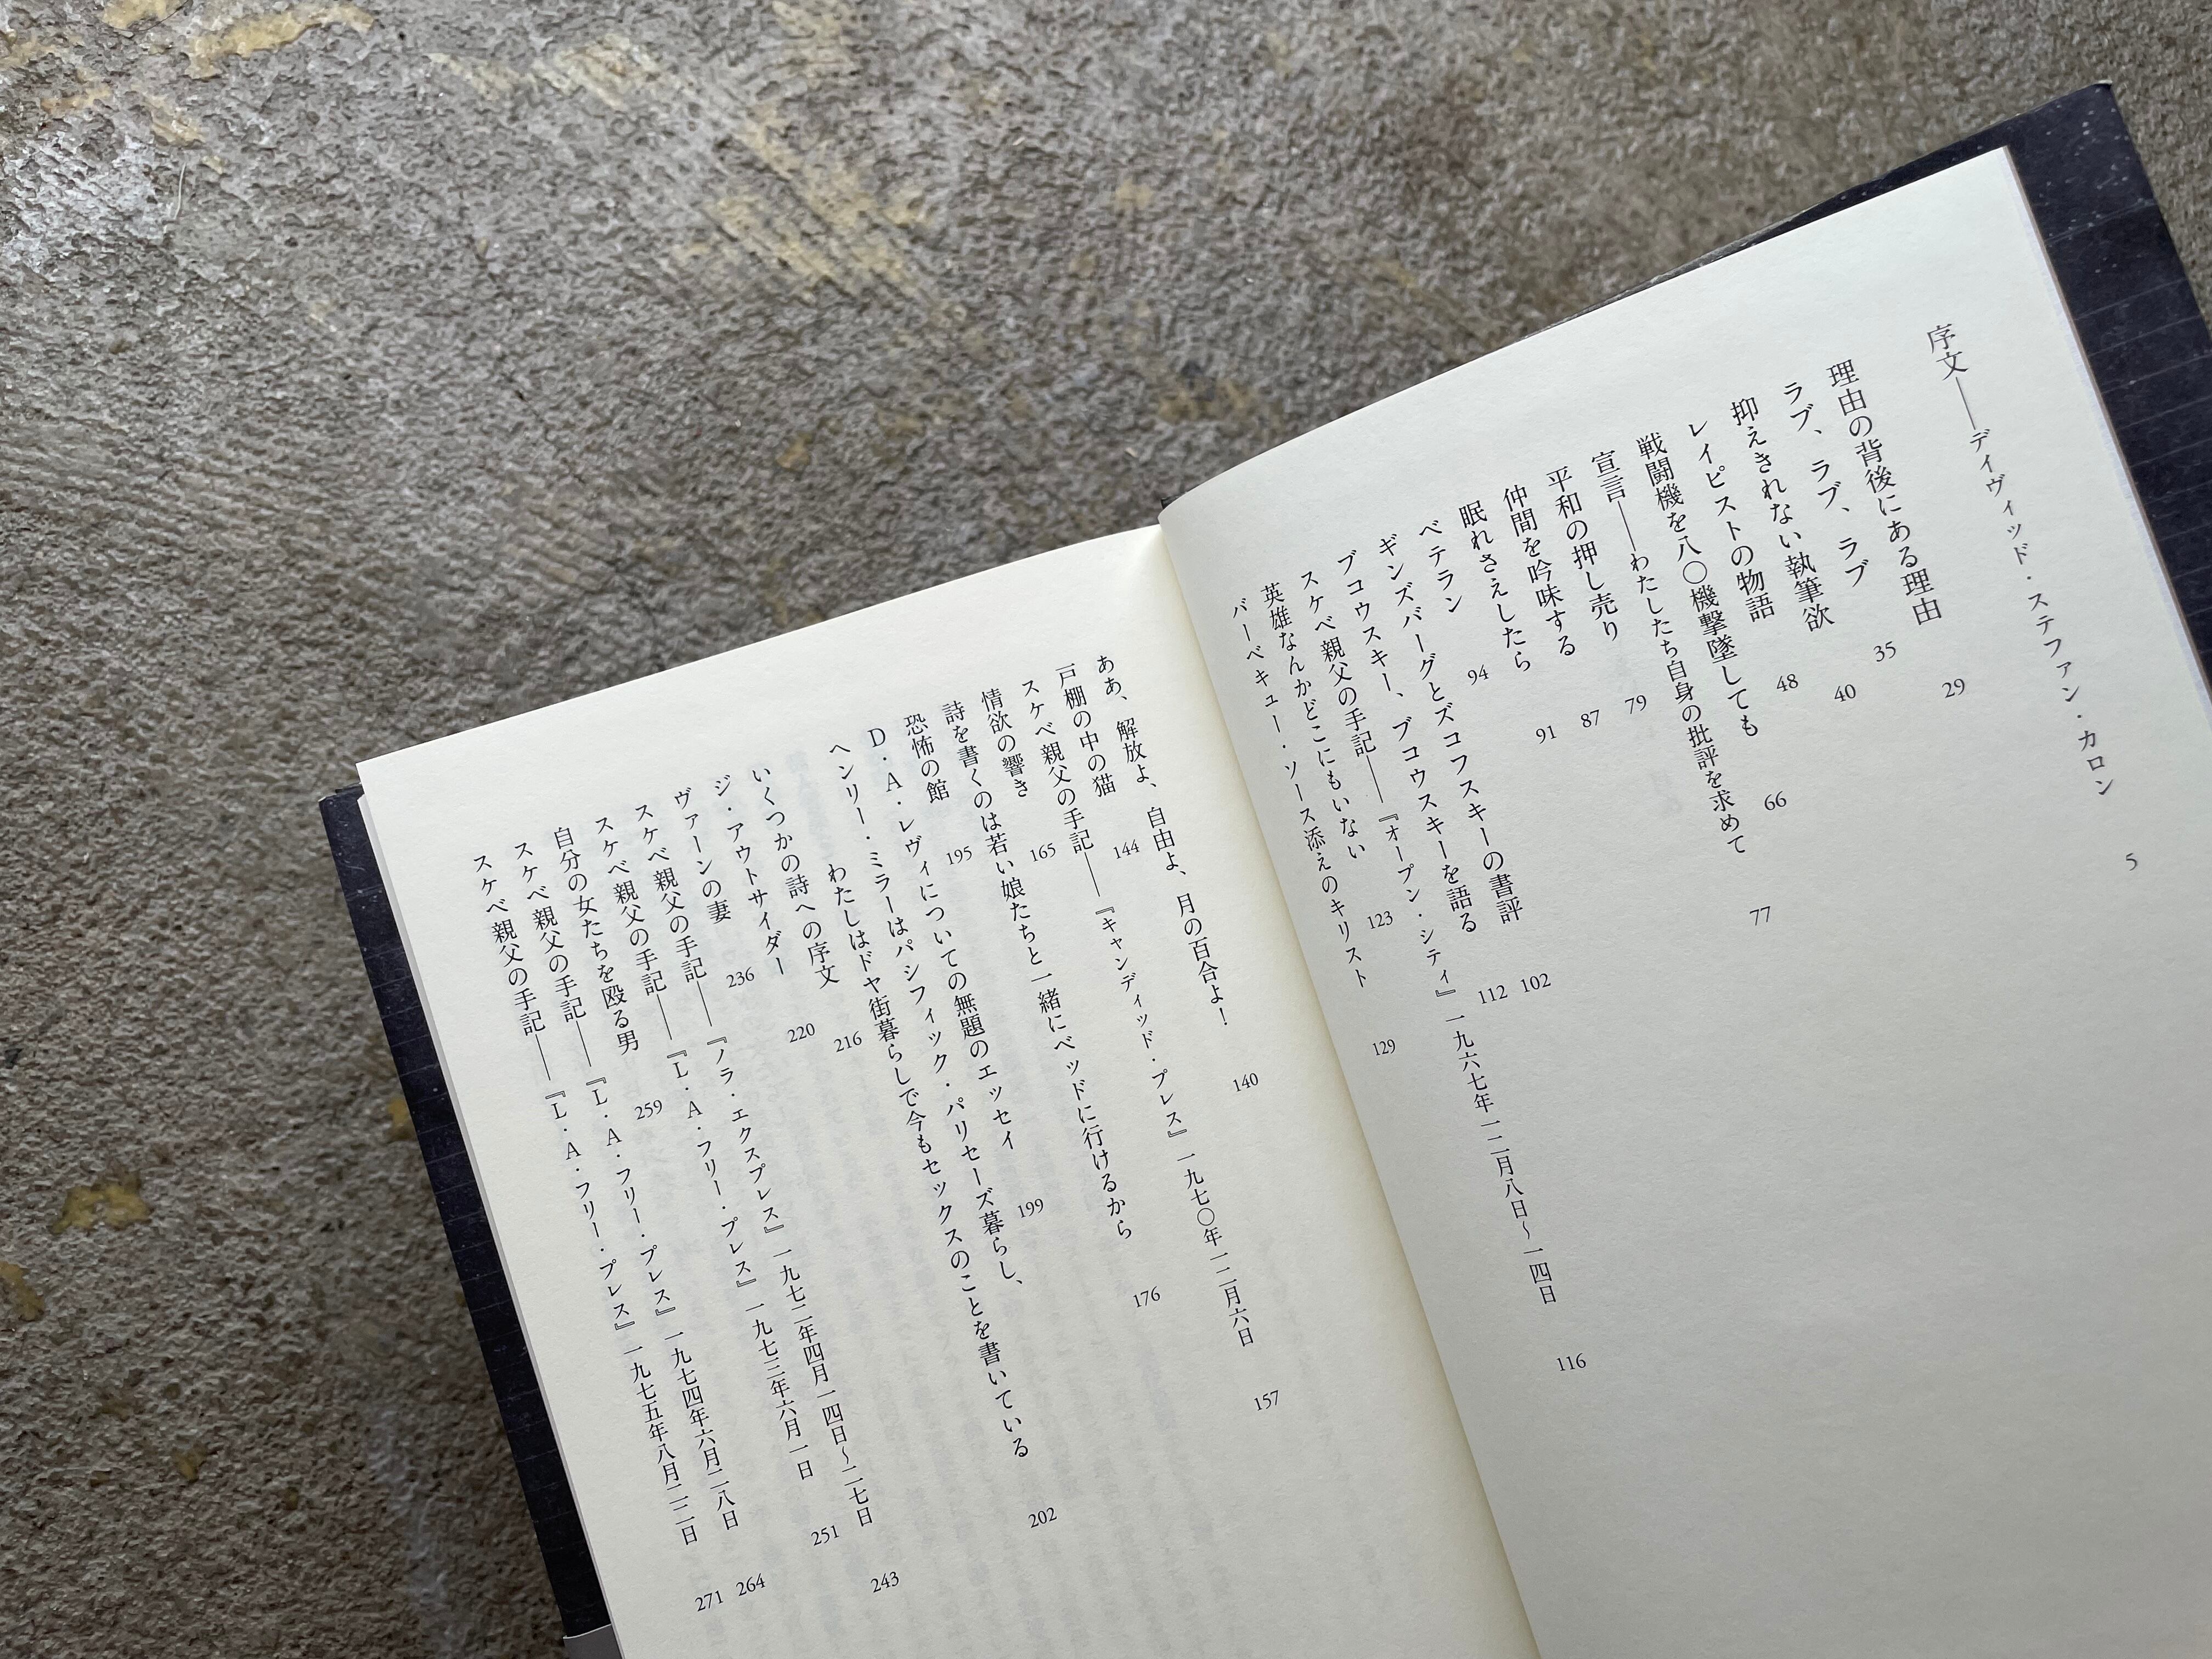 序文――デイヴィッド・ステファン・カロン 5
理由の背後にある理由 29
ラブ、ラブ、ラブ 35
抑えきれない執筆欲 40
レイピストの物語 48
戦闘機を八〇機撃墜しても 66
宣言――わたしたち自身の批評を求めて 77
平和の押し売り 79
仲間を吟味する 87
眠れさえしたら 91
ベテラン 94
ギンズバーグとズコフスキーの書評 102
ブコウスキー、ブコウスキーを語る 112
スケベ親父の手記――『オープン・シティ』一九六七年一二月八日〜一四日 116
英雄なんかどこにもいない 123
バーベキュー・ソース添えのキリスト 129
ああ、解放よ、自由よ、月の百合よ! 140
戸棚の中の猫 144
スケベ親父の手記――『キャンディッド・プレス』一九七〇年一二月六日 157
情欲の響き 165
詩を書くのは若い娘たちと一緒にベッドに行けるから 176
恐怖の館 195
D・A・レヴィについての無題のエッセイ 199
ヘンリー・ミラーはパシフィック・パリセーズ暮らし、
わたしはドヤ街暮らしで今もセックスのことを書いている 202
いくつかの詩への序文 216
ジ・アウトサイダー 220
ヴァーンの妻 236
スケベ親父の手記――『ノラ・エクスプレス』一九七二年四月一四日〜二七日 243
スケベ親父の手記――『L・A・フリー・プレス』一九七三年六月一日 251
自分の女たちを殴る男 259
スケベ親父の手記――『L・A・フリー・プレス』一九七四年六月二八日 264
スケベ親父の手記――『L・A・フリー・プレス』一九七五年八月二二日 271